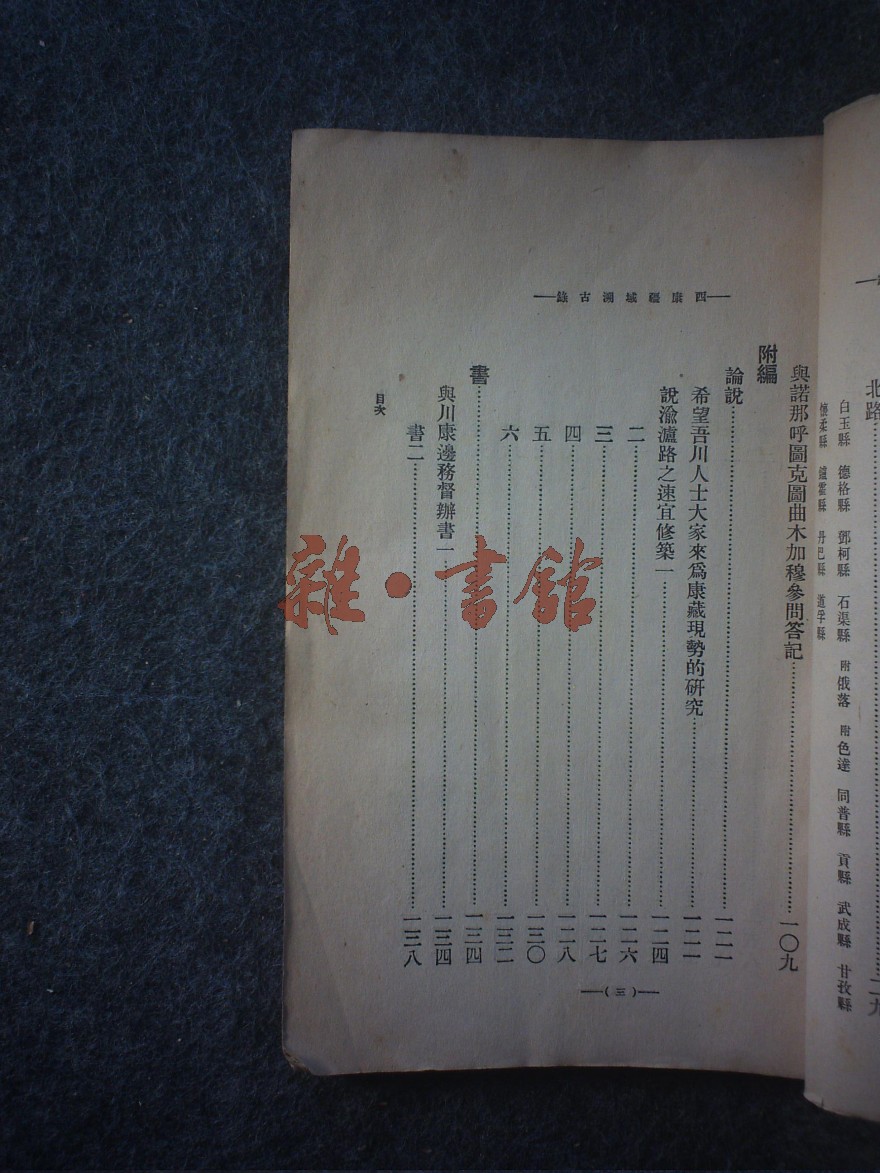 北路
白玉縣 德格縣 鄧柯縣 石渠縣 附俄落 附色達 同普縣 貢縣 武成縣 甘孜縣
懷柔縣 丹巴縣 道孚縣
西康疆域溯古錄
與諾那呼圖克圖曲木加穆參問答記……一〇九
附編
論說……一二一
希望吾川人士大家來爲康藏現勢的研究……一二一
說渝瀘路之速宜修築一……一二四
二……一二六
三……一二七
四……一二八
五……一三〇
六……一三二
書……一三四
與川康邊務督辦書一……一三四
書二……一三八
目次
(三)
雜·書館